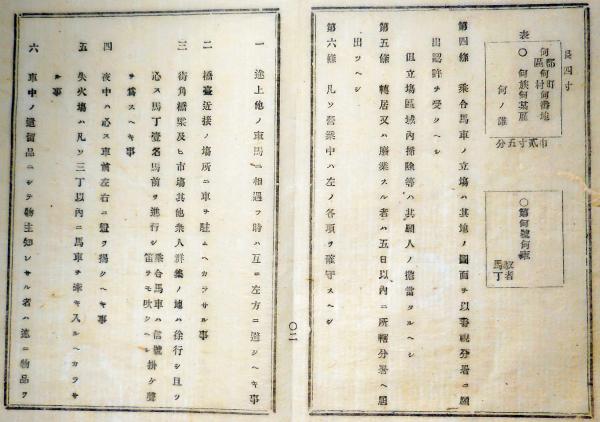 長四寸
表
何郡區何町村何番地
○何族何某雇
何ノ誰
巾貳寸五分
○第何號何廐
馭者
馬丁
第四條 乘合馬車ノ立塲ハ其地ノ圖面ヲ以警視分署ニ願
出認許ヲ受クヘシ
但立塲區域內掃除等ハ其願人ノ擔當タルヘシ
第五條 轉居又ハ廢業スル者ハ五日以內ニ所轄分署ヘ屆
出ツヘシ
第六條 凡ソ營業中ハ左ノ各項ヲ確守スヘシ
○二
一 途上他ノ車馬ニ相遇フ時ハ互ニ左方ニ避シヘキ事
二 橋臺近接ノ塲所ニ車ヲ駐ムヘカラサル事
三 街角橋梁及ヒ市塲其他衆人群集ノ地ハ徐行シ且ツ
必ス馬丁壹名馬前ヲ進行シ乘合馬車ハ信號笛ヲモ吹クヘシ掛ケ聲
ヲ爲スヘキ事
四 夜中ハ必ス車前左右ニ燈ヲ揭クヘキ事
五 失火塲ハ凡ソ三丁以內ニ馬車ヲ牽キ入ルヘカラサ
ル事
六 車中ノ遺留品ニシテ物主知レサル者ハ速ニ物品ヲ